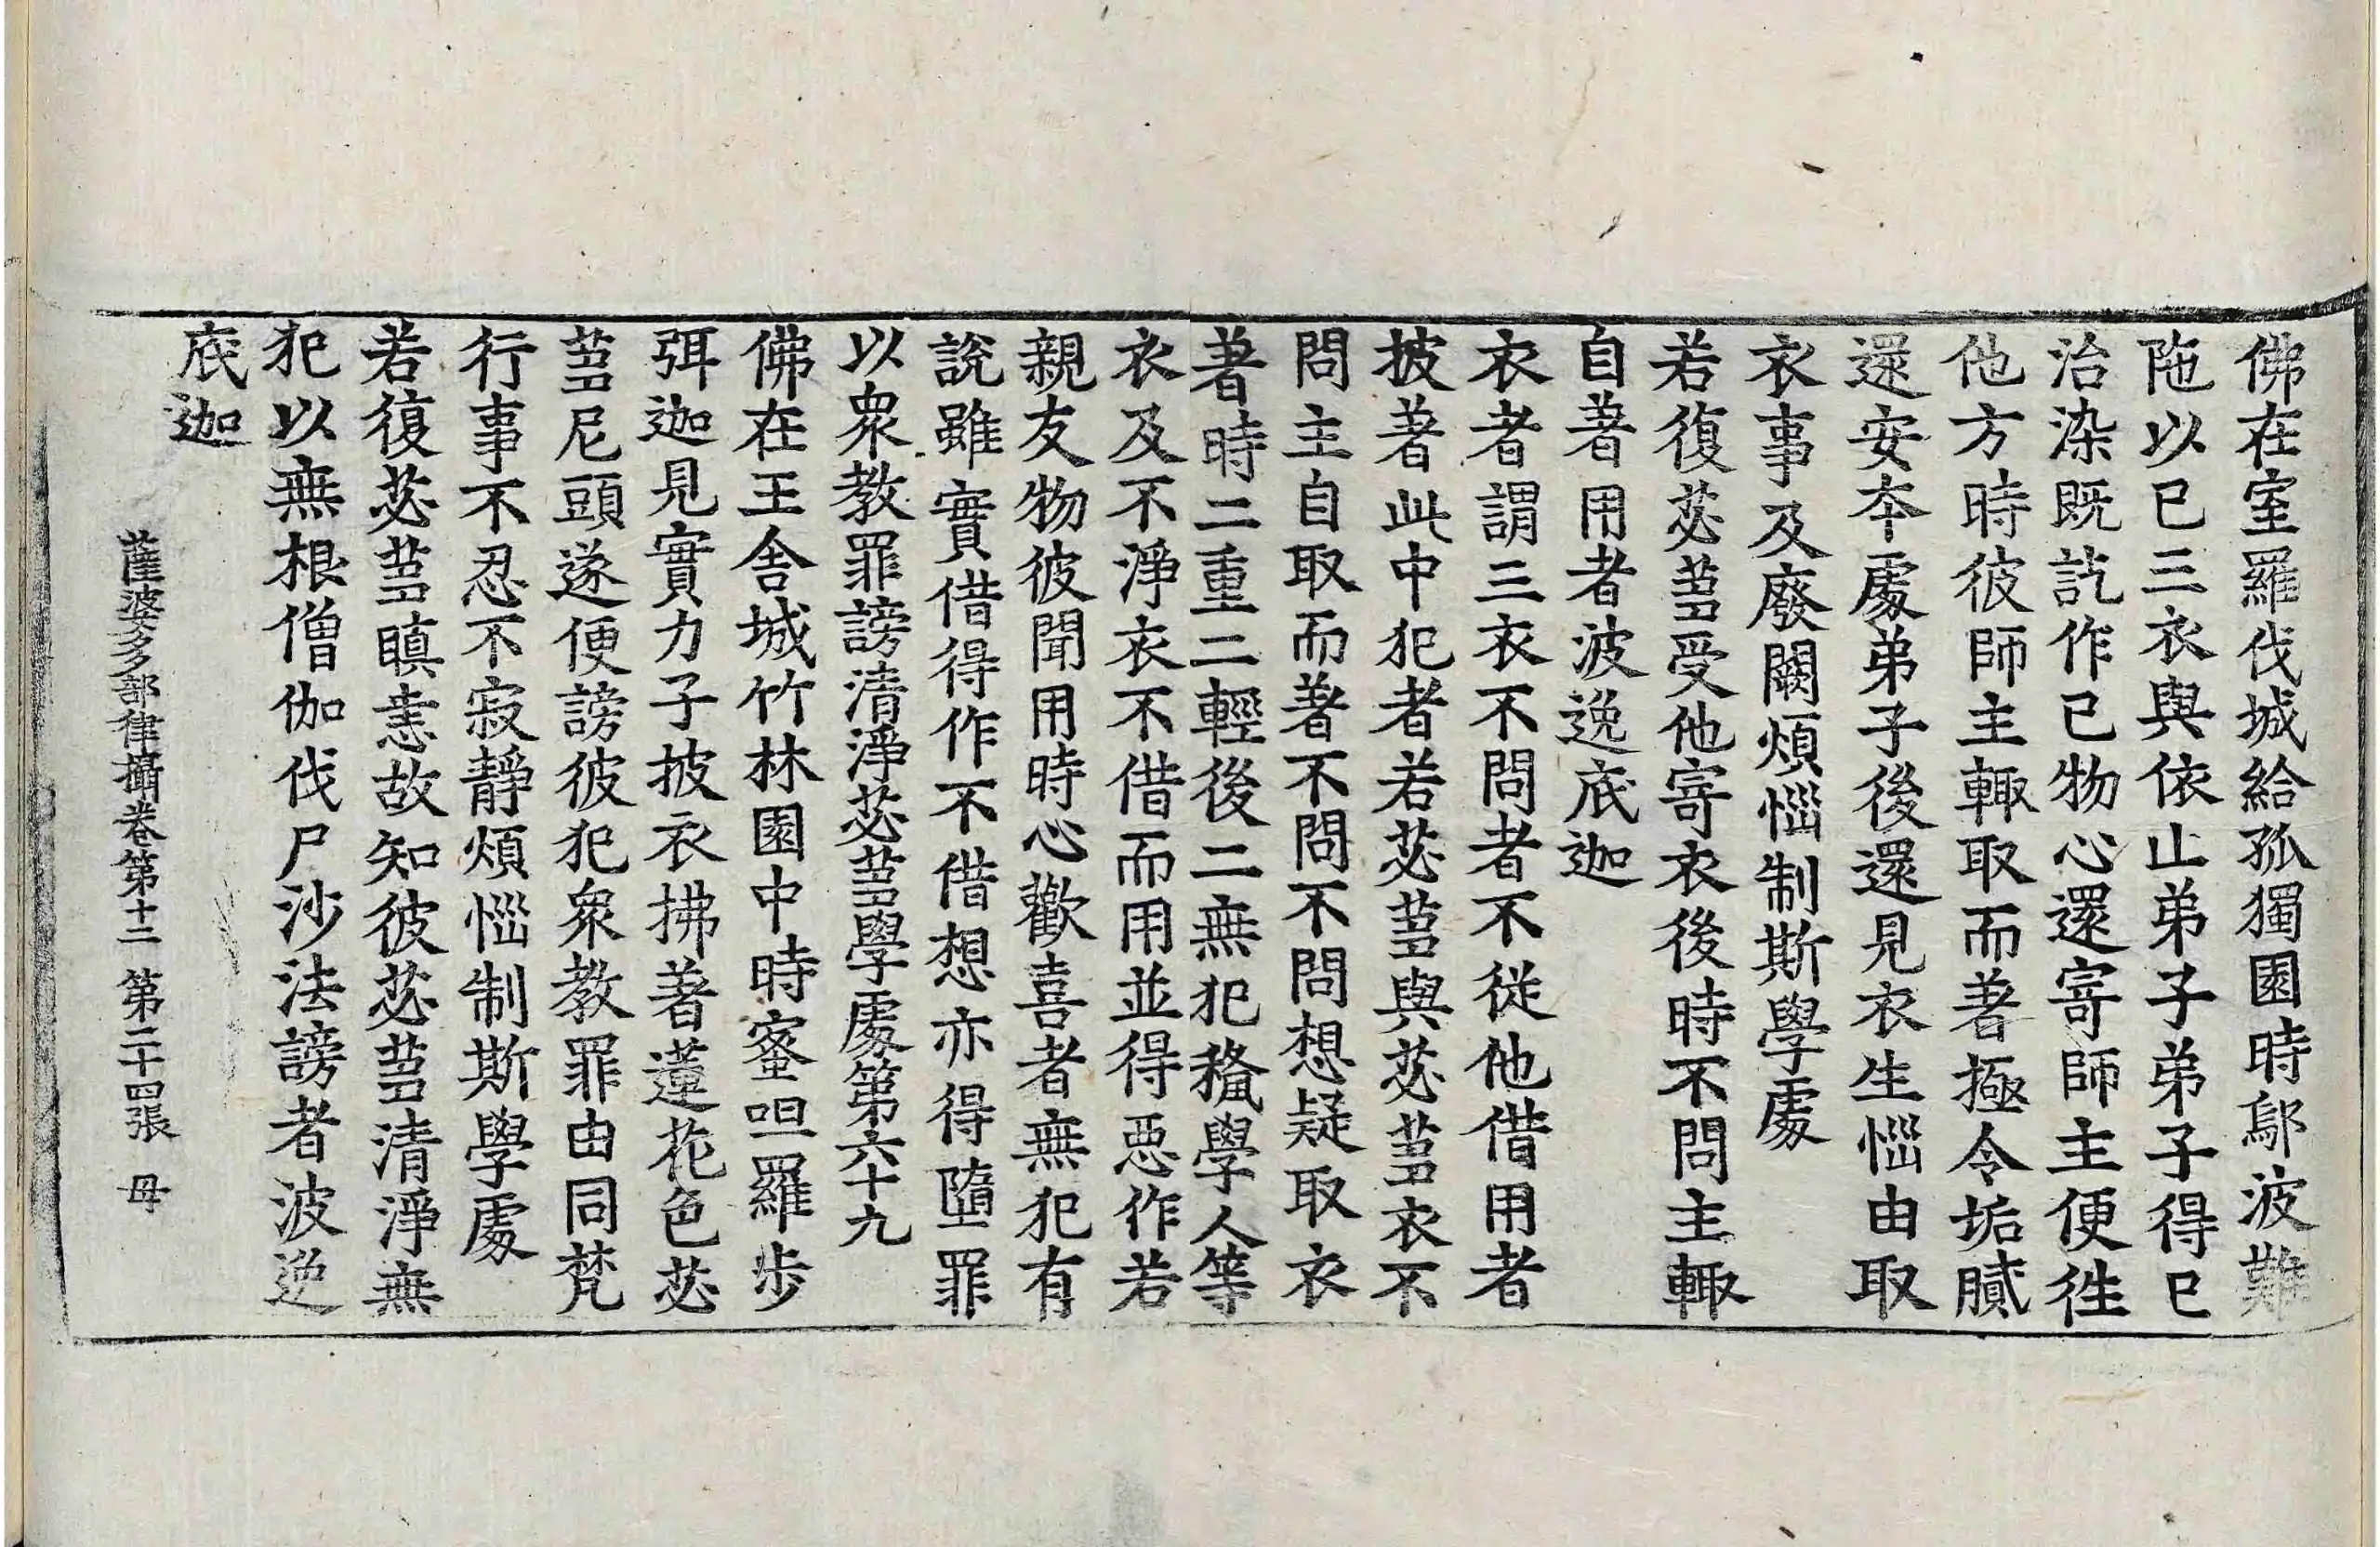 佛在室羅伐城給孤獨園時鄔波難
陁以已三衣與依止弟子弟子得已
治染既訖作已物心還寄師主便徃
他方時彼師主輙取而著極令垢膩
還安本處弟子後還見衣生惱由取
衣事及廢闕煩惱制斯學處
若復苾蒭受他寄衣後時不問主輙
自著用者波逸底迦
衣者謂三衣不問者不從他借用者
披著此中犯者若苾蒭與苾蒭衣不
問主自取而著不問不問想疑取衣
著時二重二輕後二無犯猪學人等
衣及不淨衣不借而用並得惡作若
親友物彼聞用時心歡喜者無犯有
說雖實借得作不借想亦得墮罪
以衆教罪謗清淨苾蒭學處第六十九
佛在王舍城竹林園中時蜜呾羅步
弭迦見實力子披衣拂著蓮花色苾
蒭尼頭遂便謗彼犯衆教罪由同梵
行事不忍不寂靜煩惱制斯學處
若復苾蒭瞋恚故知彼苾蒭清淨無
犯以無根僧伽伐尸沙法謗者波逸
底迦
薩婆多部律攝卷第十二 第二十四張 母